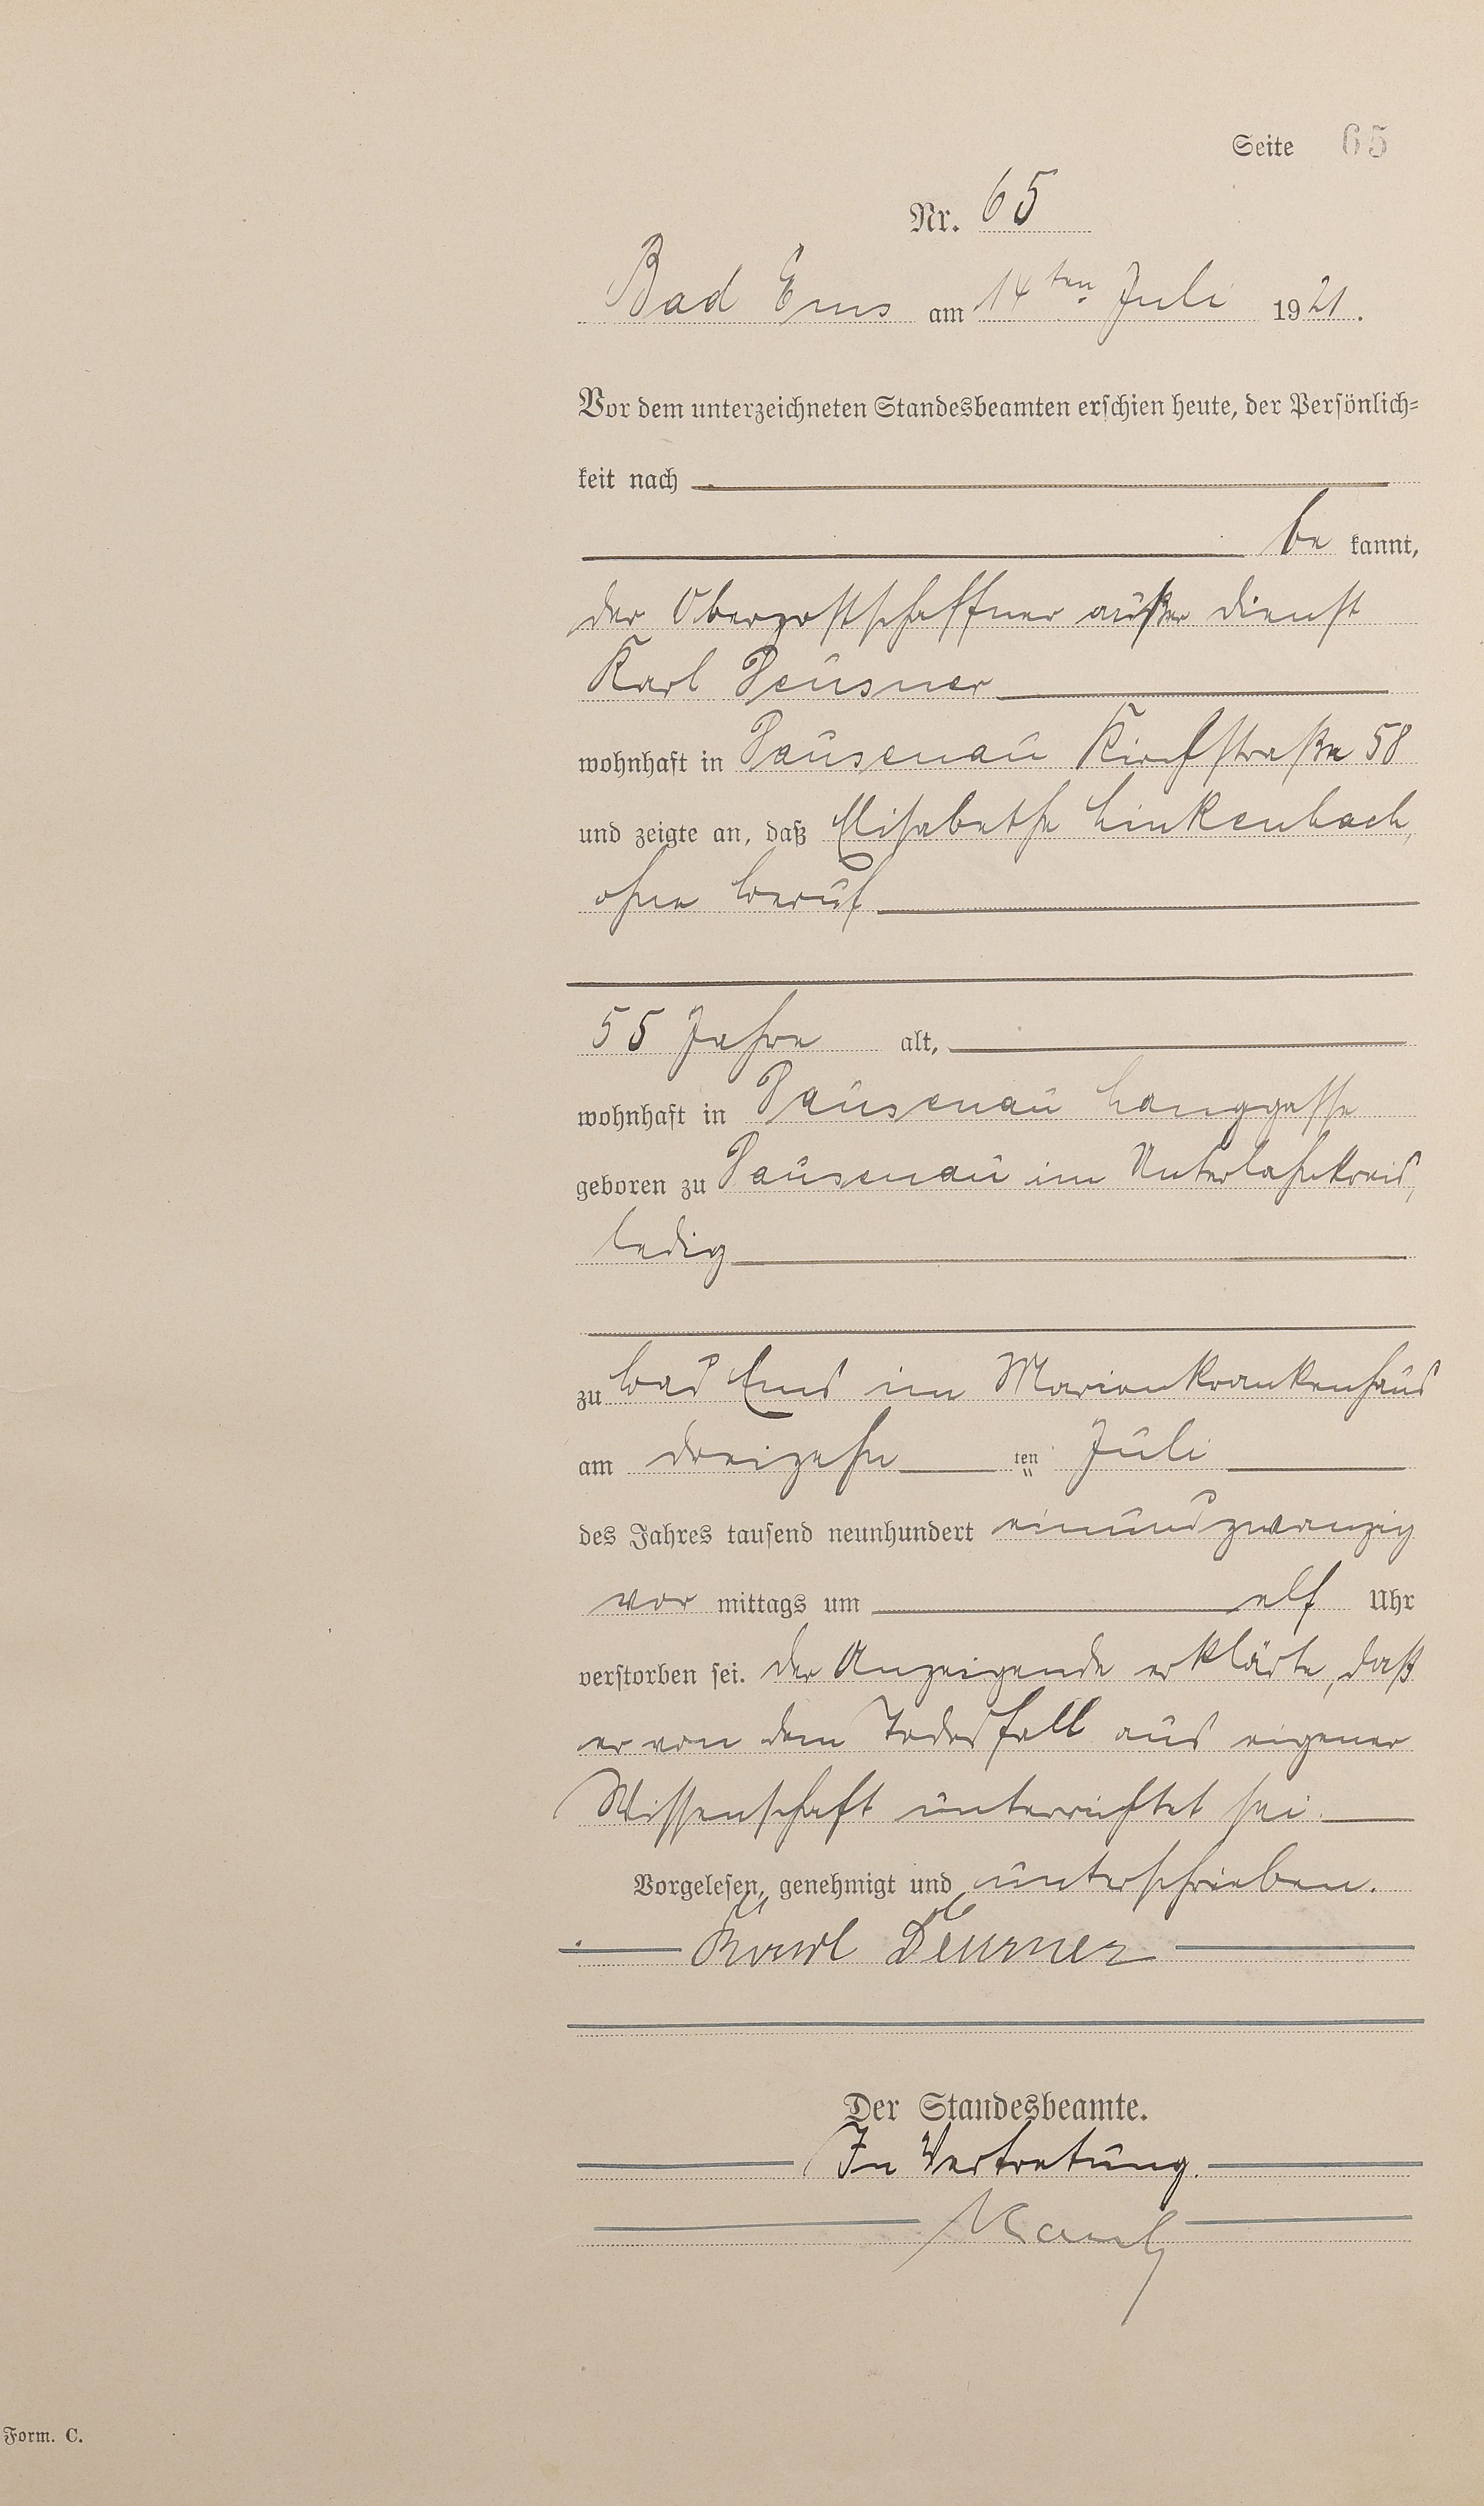 Seite 65
Nr. 65
Bad Ems am 14ten Juli 1921.
Vor dem unterzeichneten Standesbeamten erschien heute, der Persönlich-
keit nach
be kannt,
der Oberpostschaffner außer Dienst
Karl
wohnhaft in Dausenau Kirchstraße 58
und zeigte an, daß Elisabethe Linkenbach,
ohne Beruf
55 Jahre alt,
wohnhaft in Dausenau Langgasse
geboren zu Dausenau im Unterlahnkreis,
ledig
zu Bad Ems im Marienkrankenhaus
am dreizehn ten Juli
des Jahres tausend neunhundert einundzwanzig
vor mittags um elf Uhr
verstorben sei. Der Anzeigende erklärte, daß
er von dem Todesfall aus eigener
Wissenschaft unterrichtet sei.
Vorgelesen, genehmigt und unterschrieben.
Karl
Der Standesbeamte.
In Vertretung.
Form. C.